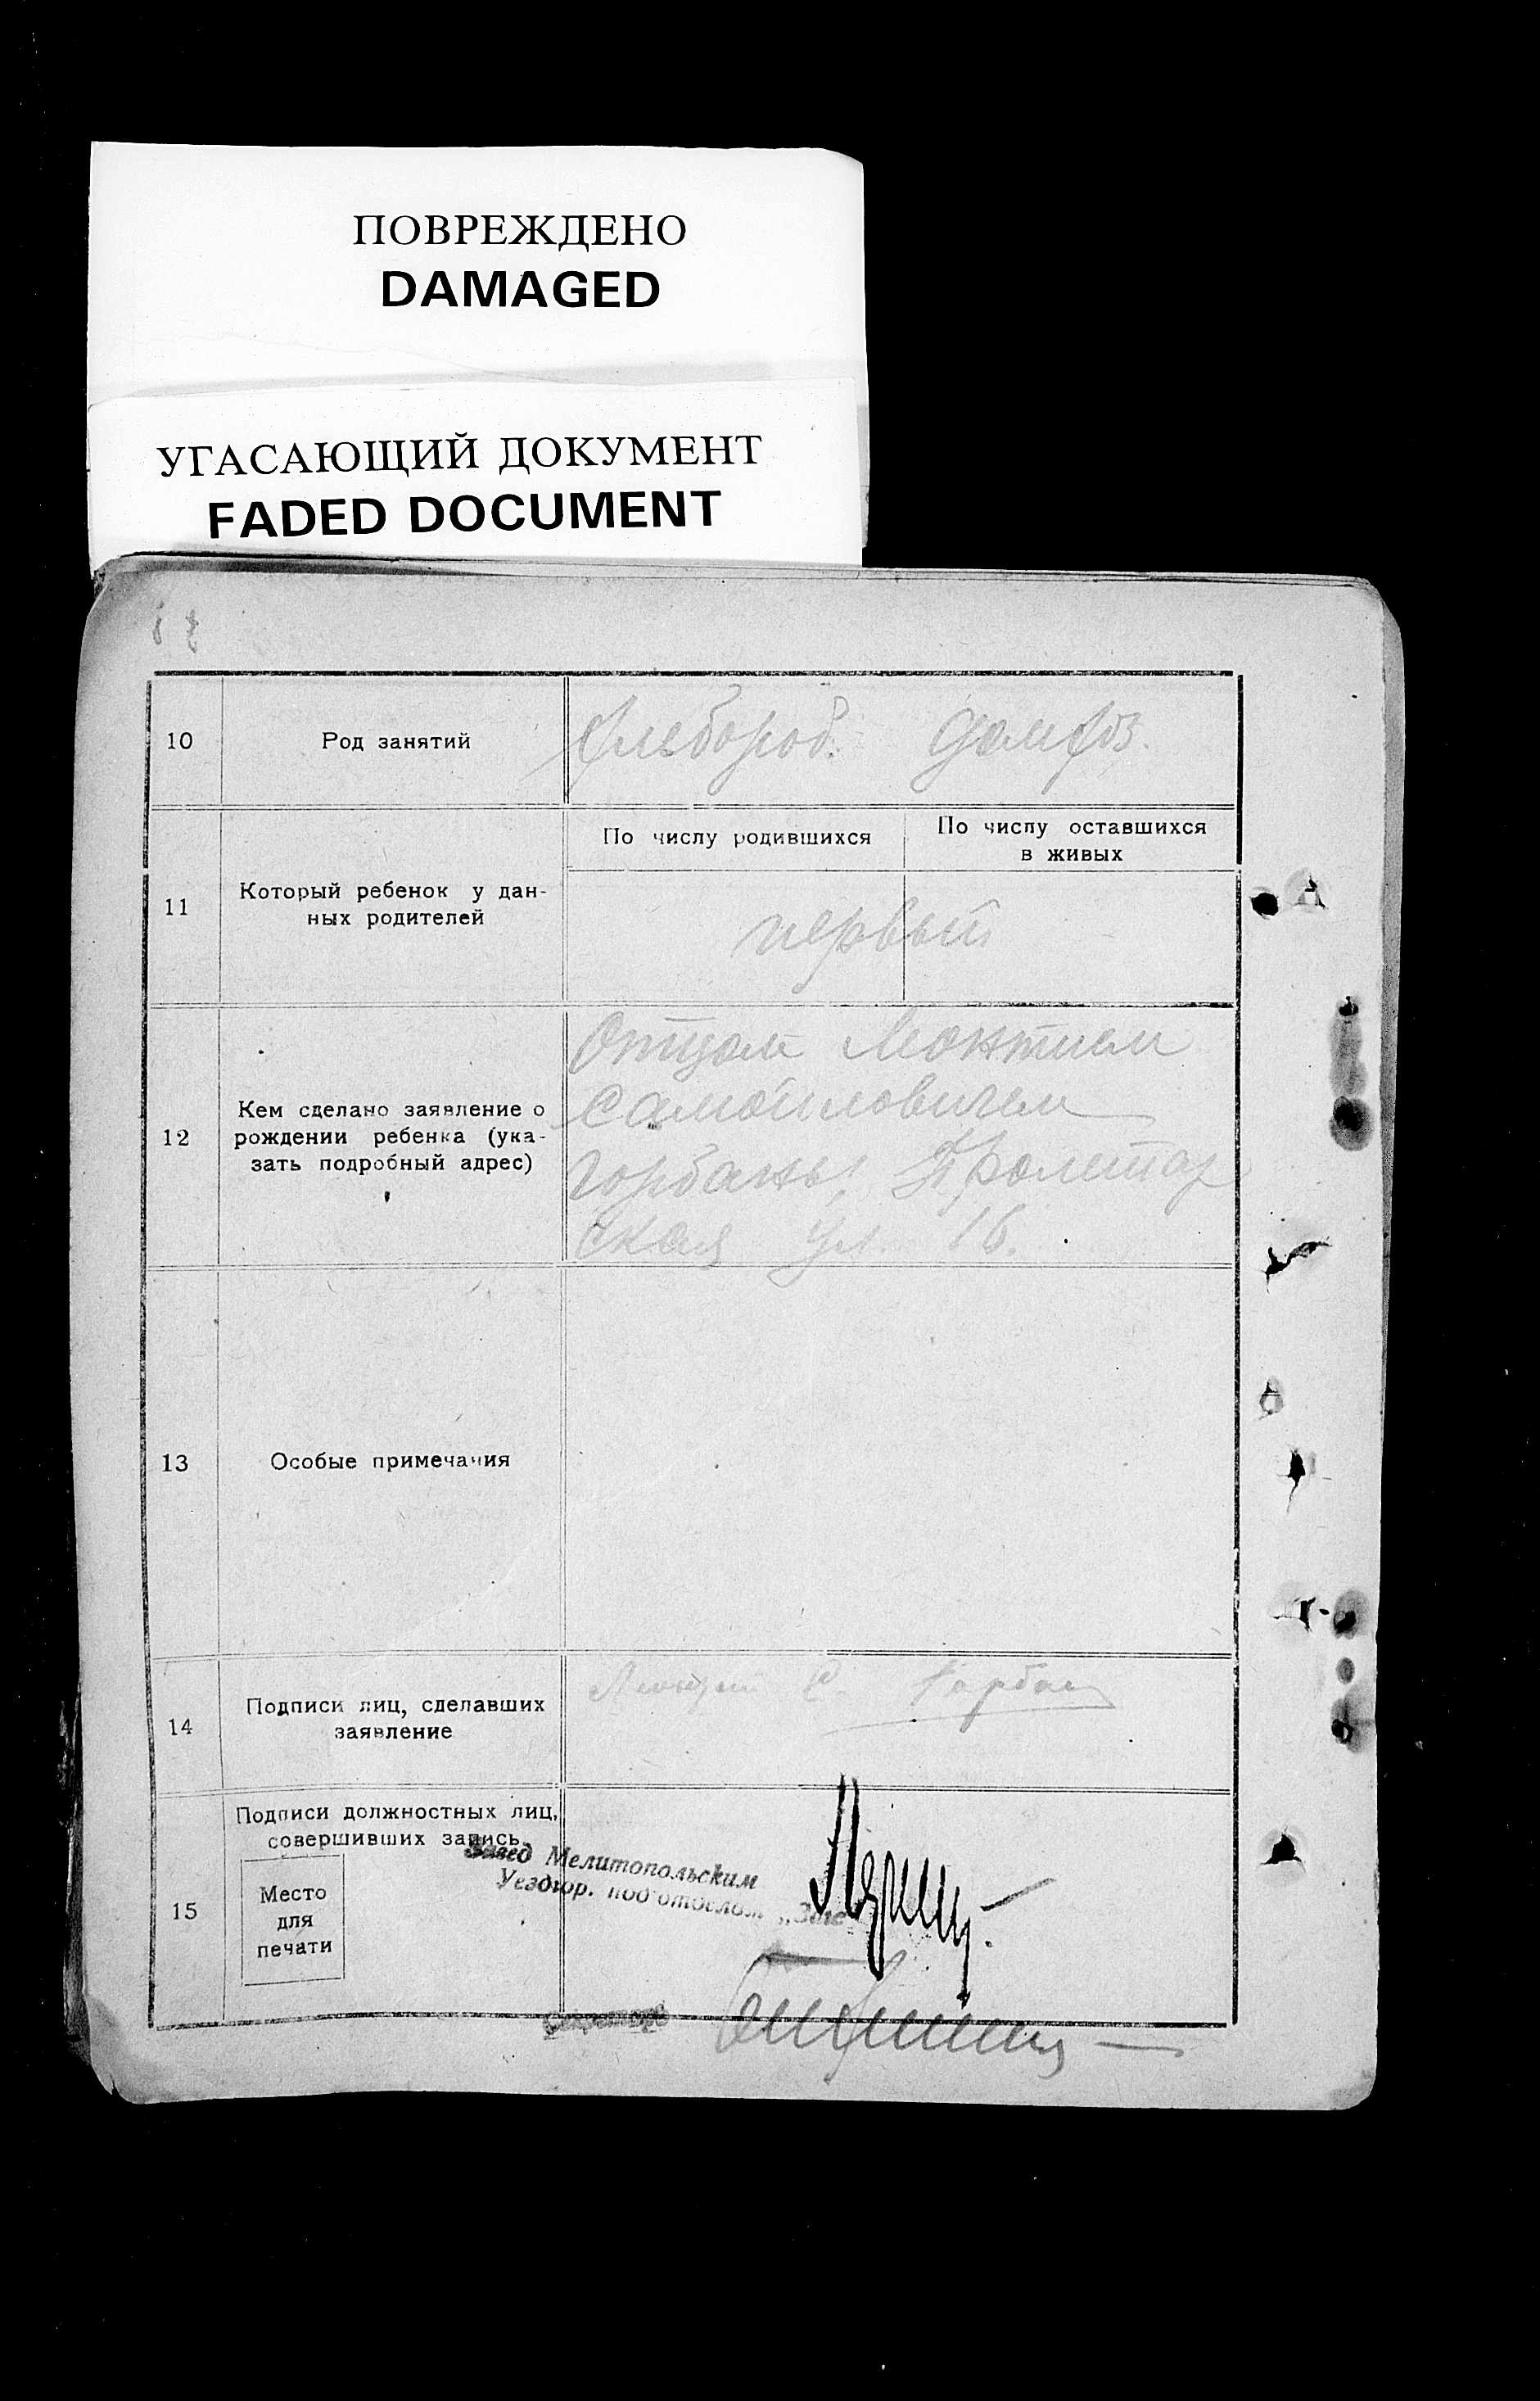 ПОВРЕЖДЕНО
DAMAGED
УГАСАЮЩИЙ ДОКУМЕНТ
FADED DOCUMENT
10
Род занятий
хлебороб. домхоз.
11
Который ребенок у дан-
ных родителей
По числу родившихся
По числу оставшихся
в живых
первый
12
Кем сделано заявление о
рождении ребенка (ука-
зать подробный адрес)
Отцом Леонтием
Самойловичем
Горбань, Пролетар
ская ул. 16.
13
Особые примечания
14
Подписи лиц, сделавших
заявление
Леонтий С. Горбань
15
Подписи должностных лиц,
совершивших запись
Место
для
печати
Завед Мелитопольским
Уездгор. подотделом „Загс"
Секретарь